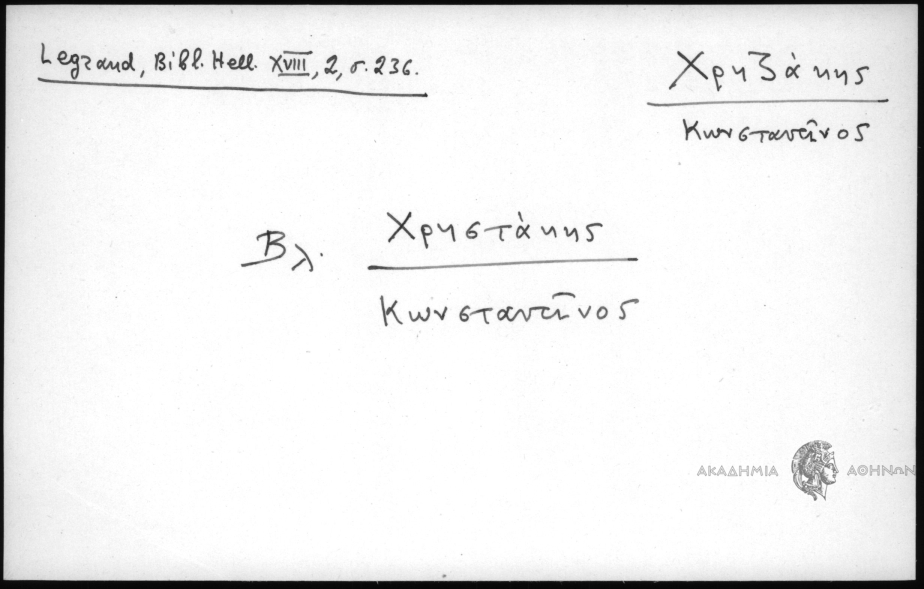 Legrand, Bibl. Hell. XVIII, 2, σ. 236.
Χρηζάκης
Κωνσταντῖνος
Βλ. Χρηστάκης
Κωνσταντῖνος
ΑΚΑΔΗΜΙΑ ΑΘΗΝΩΝ